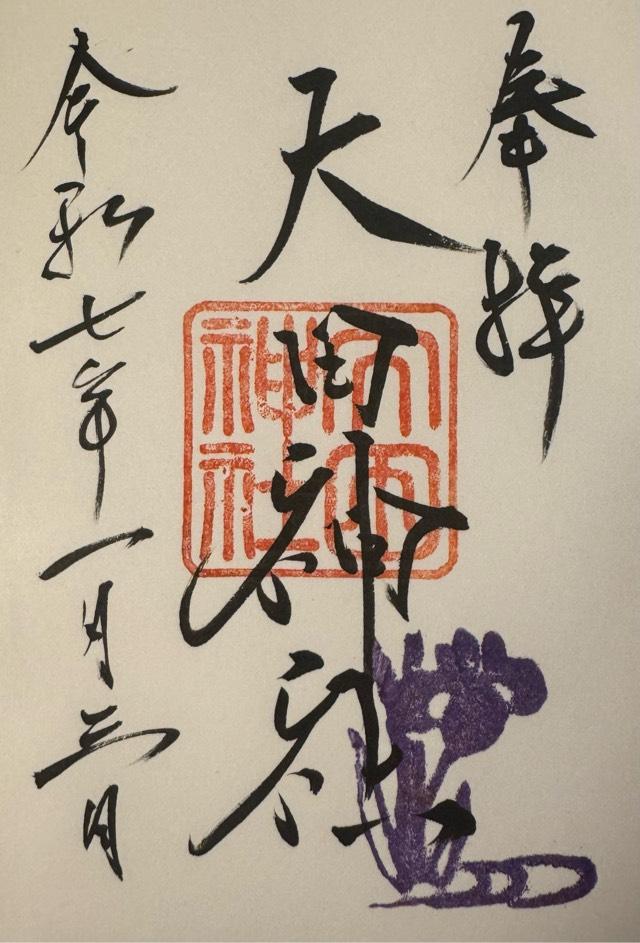 奉拝
天 神社
神社
令和七年一月三日